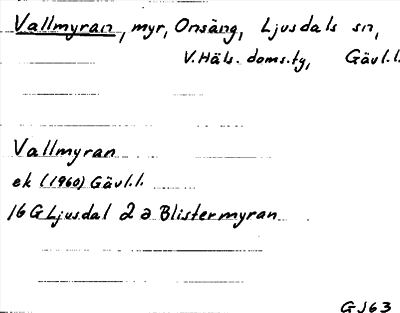 Vallmyran, myr, Onsäng, Ljusdals sn,
V.Häls. doms.tg, Gävl.l.
Vallmyran
ek (1960) Gävl.l.
16 G Ljusdal 2 a Blistermyran
GJ63